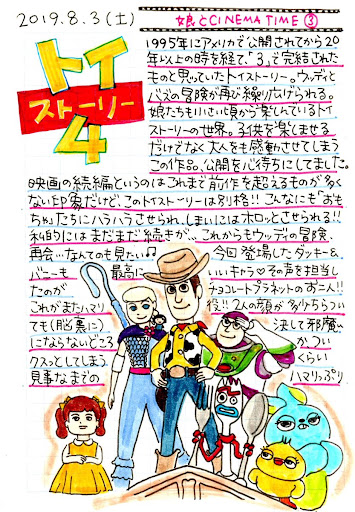 2019.8.3(土)
娘とCINEMA TIME ③
トイ
ストーリー
4
1995年にアメリカで公開されてから20
年以上の時を経て、"3"で完結された
ものと思っていたトイストーリー。ウッディと
バズの冒険が再び繰り広げられる。
娘たちも小さい頃から楽しんでいるトイ
ストーリーの世界。子供を楽しませる
だけでなく大人をも感動させてしまう
この作品、公開を心待ちにしてました。
映画の続編というのはこれまで前作を超えるものが多く
ない印象だけど、このトイストーリーは別格!! こんなにも"おも
ちゃ"たちにハラハラさせられ、しまいにはホロッとさせられる!!
私的にはまだまだ続きが…これからもウッディの冒険、
再会…なんてのも見たい♫
今回登場したダッキー&
バニーも
最高に
いいキャラ♡その声を担当し
たのが
チョコレートプラネットのお二人!!
これがまたハマり
役!! 2人の顔が多少ちらつい
ても(脳裏に)
決して邪魔
にならないどころ
かつい
クスっとしてしまう
くらい
見事なまでの
ハマりっぷり